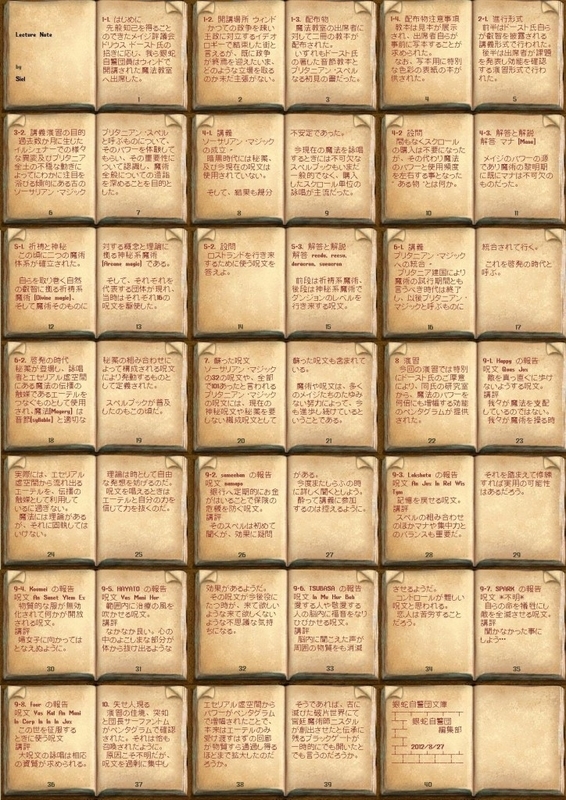 Lecture Note
by
Siel
1-1. はじめに
先般知己を得ること
のできたメイジ評議会
ドリウス ドースト氏の
招きに応じ、我ら銀蛇
自警団員はウインドで
開講された魔法教室
へ出席した。
1
1-2. 開講場所 ウィンド
かつての戦争を疎い
王政に対立するイデオ
ロギーで結束した街と
言えるが、既に戦争
が終焉を迎えたいま、
どのような立場を取る
のか未だ主張がない。
2
1-3. 配布物
魔法教室の出席者に
対して二冊の教本が
配布された。
いずれもドースト氏
の著した音節教本と
ブリタニアン・スペル
なる初見の書だった。
3
1-4. 配布物注意事項
教本は見本が展示
され、出席者自らが
事前に写本することが
求められた。
なお、写本用に特別
な色彩の表紙の本が
供された。
4
2-1. 進行形式
前半はドースト氏自ら
が叡智を披露される
講義形式で行われた。
後半は出席者が課題
を発表し効能を確認す
る演習形式で行われ
た。
5
3-2. 講義演習の目的
6
ブリタニアン・スペル
と呼ぶものについて、
そのパワーを体験して
もらい、その重要性に
ついて認識し、魔術
全般についての造詣
を深めることを目的と
した。
7
4-1. 講義
ソーサリアン・マジック
の成立・
暗黒時代には秘薬、
及び今現在の呪文は
使用されていない。
そして、効果も幾分
8
不安定であった。
今現在の魔法を詠唱
するときには不可欠な
スペルブックもいまだ
一般的でなく、購入
したスクロール単位の
詠唱が主流だった。
9
4-2 設問
間もなくスクロール
の購入は不要になった
が、その代わり魔法
のパワーと使用頻度
を左右する事となった
「ある物」とは何か。
10
4-3. 解答と解説
解答 マナ [Mana]
メイジのパワーの源
であり黎明期の魔術
に既にマナは不可欠の
ものだった。
11
5-1. 祈祷と神秘
この頃に二つの魔術
体系が確立された。
自らを取り巻く自然
の叡智に拠る祈祷系
魔術 [Divine magic]、
そして魔術そのものに
12
対する概念と理論に
拠る神秘系魔術
[Arcane magic] である。
そして、それぞれを
代表する団体が現れ、
当時はそれぞれ16の
呪文を駆使した。
13
5-2. 設問
ロストランドを行き来
するために使う呪文を
答えよ。
14
5-3. 解答と解説
前段は祈祷系魔術、
後段は神秘系魔術で
ダンジョンのレベルを
行き来する呪文。
15
6-1. 講義
ブリタニアン・マジック
への統合・
ブリタニア建国により
魔術の試行期間とも
言うべき時代は終了
し、以後ブリタニアン・
マジックと呼ぶものに
16
統合されて行く。
これを啓発の時代と
呼ぶ。
17
6-2. 啓発の時代
秘薬が登場し、詠唱
者とエセリアル虚空間
にある魔法の伝播の
触媒であるエーテルを
つなぐものとして使用
され、魔法[Magery] は
音節[syllable] と適切な
18
秘薬の組み合わせによ
って構成される呪文に
より発動するものとし
て定義された。
スペルブックが普及
したのもこの頃だ。
19
7. 蘇った呪文
ソーサリアン・マジック
の32の呪文や、全部で
108あったと言われる
ブリタニアン・マジック
の呪文には、現在の
神秘呪文や秘薬を要
しない編成呪文として
20
蘇った呪文も含まれて
いる。
魔術や呪文は、多く
のメイジたちのたゆみ
ない努力によって、今
も進歩し続けていると
いうことである。
21
8. 演習
今回の演習では特別
にドースト氏のご厚意
により、同氏の研究室
から、魔法のパワーを
何倍にも増幅する効能
のペンタグラムが提供
された。
22
9-1. Hoppy の報告
講評
我々が魔法を支配
しているのではない。
我々が魔術を操る時
23
実際には、エセリアル
虚空間から流れ出る
エーテルを、伝播の
触媒として利用して
いるに過ぎない。
魔法には理論がある
が、それに固執しては
いけない。
24
理論は時として自由
な発想を妨げるのだ。
呪文を唱えるときは
エーテルと自分の力を
信じて力を抜くのだ。
25
9-2. someoboe の報告
銀行へ定期的にお金
がはいることで保護の
危機を防ぐ呪文。
講評
そのスペルは初めて
聞くが、効果に疑問
26
がある。
今度またしらふの時
に詳しく聞くとしよう。
酔って講義に参加
するのは控えるように。
27
記憶を戻せる呪文。
講評
スペルの組み合わせ
のほかマナや集中力と
のバランスも重要だ。
28
それを踏まえて修練
すれば実用の可能性
はあるだろう。
29
物質的な服が無効
化されて何かが開放
される呪文。
講評
婦女子に向かっては
となえぬように。
30
9-5. HAYATO の報告
呪文 Vas Mani Hur
範囲内に治療の風を
吹かせる呪文。
講評
なかなか良い。心の
中のよこしまな部分が
体から抜け出るような
31
効果があるようだ。
その呪文が今後役に
たつ時が、来て欲しい
ような来て欲しくない
ような不思議な気持
ちになる。
32
9-6. TSUBASA の報告
愛する人や敬愛する
人の脳内に福音をなり
ひびかせる呪文。
講評
脳内に聞こえた声が
周囲の物質をも消滅
33
させるようだ。
コントロールが難しい
呪文と思われる。
恋人は苦労すること
だろう。
34
9-7. SPARK の報告
呪文 *不明*
自らの命を犠牲にし
敵を全滅させる呪文。
講評
聞かなかった事に
しよう…
35
この世を征服する
ときに使う呪文
講評
大呪文の詠唱は相応
の資質が求められる。
36
10. 失せし現る
演習の佳境、突如
と団長サーファントム
がペンタグラムで確認
された。それは他も
召喚されたように。
原因こそ不明だが、
呪文を過剰に集中し
37
エセリアル虚空間から
パワーがペンタグラム
で増幅されたことで、
本来はエーテルのみ
受け渡すはずの回廊
が物質すら通過し得る
ほどまで拡大したのだ
ろうか。
38
そうであれば、古に
滅びた破片世界にて
宮廷魔術師ニスタル
が創出させたと伝承に
残るブラックゲートが
一時的にでも開いたと
でも言うのだろうか。
39
銀蛇自警団文庫
銀蛇自警団
編集部
2012/8/27
40